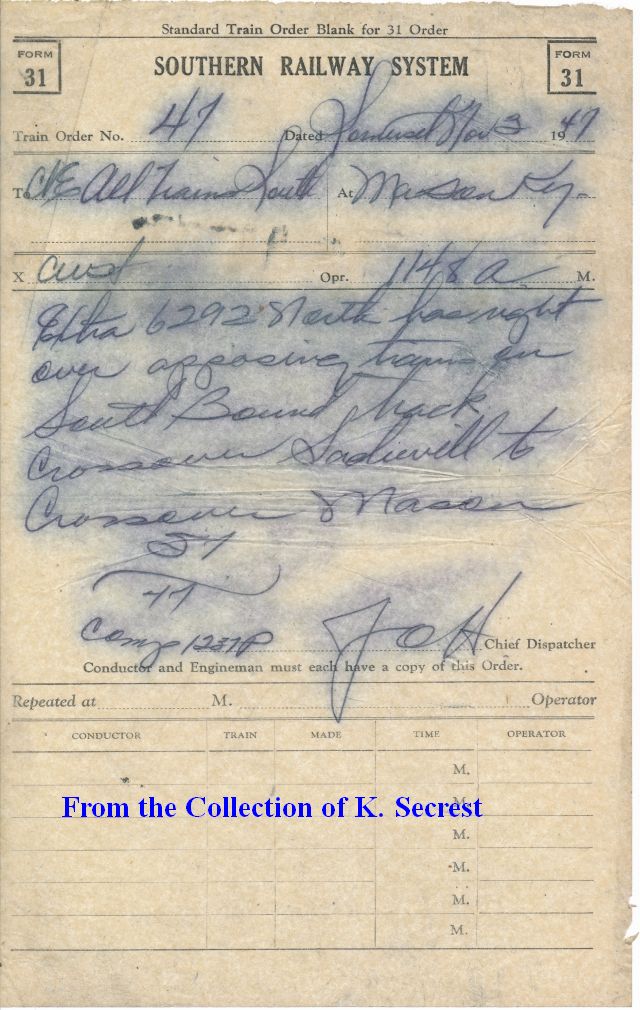 Standard Train Order Blank for 31 Order
FORM 31
SOUTHERN RAILWAY SYSTEM
FORM 31
Train Order No. 47 Dated Somerset Nov 3 1947
To C&E All Trains South At Mason Ky.
X Opr. 1148 a M.
Extra 6292 North has right
over opposing trains on
South Bound track
Crossover Sadievill to
Crossover Mason
47
Comp 1237P JOH Chief Dispatcher
Conductor and Engineman must each have a copy of this Order.
Repeated at M. Operator
CONDUCTOR TRAIN MADE TIME OPERATOR
M.
From the Collection of K. Secrest
M.
M.
M.
M.
M.